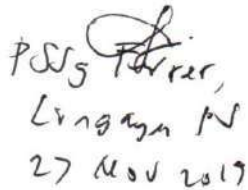 PSSg Ferrer,
Lingayen PS
27 Nov 2019